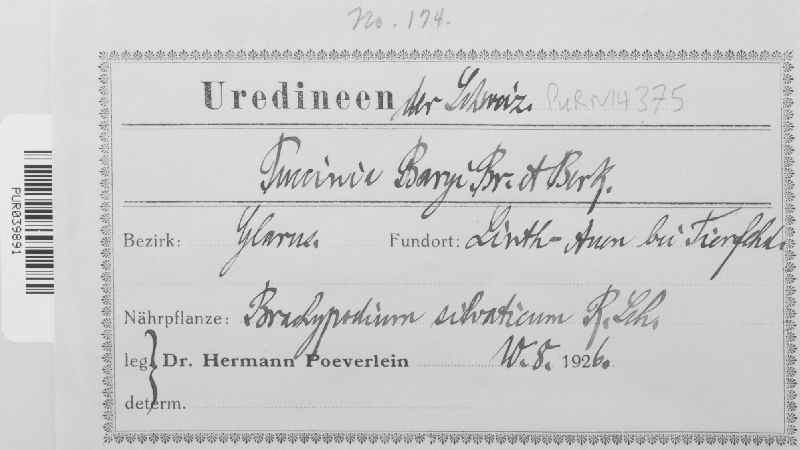 No. 174.
Uredineen der Schweiz. PUR N14375
Puccinia Baryi Br. et Berk.
Bezirk: Glarus. Fundort: Linth-Auen bei Tierfehd.
Nährpflanze: Brachypodium silvaticum R. Sch.
leg. Dr. Hermann Poeverlein 8. 1926.
determ.
PUR039891